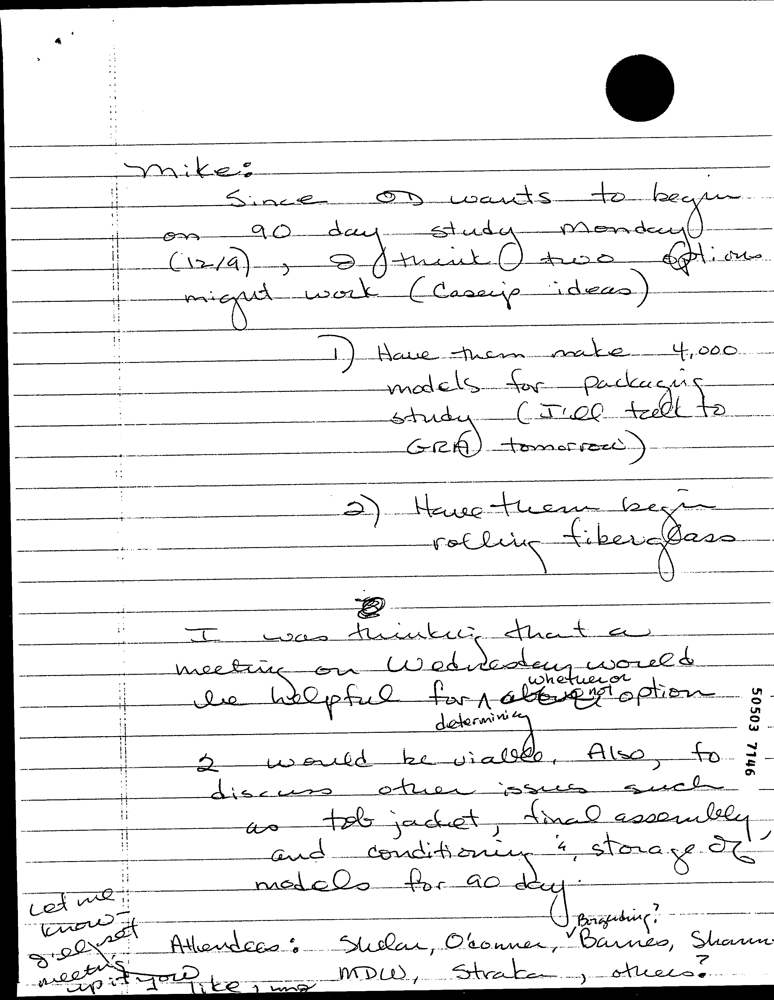 Mike:
Since OD wants to begin
on 90 day study Monday
(12/9), I think two options
might work (Casey's ideas)
1) Have them make 4,000
models for packaging
study (I'll talk to
GRA tomorrow)
2) Have them begin
rolling fiberglass
I was thinking that a
meeting on Wednesday would
be helpful for determining whether or not option
2 would be viable. Also, to
discuss other issues such
as tob jacket, final assembly,
and conditioning &, storage of
models for 90 day.
Attendees: Shelar, O'Conner, Borgerding? Barnes, Shannon
MDW, Straka, others?
Let me
know-
I'll set
meeting
up if you
like,
50503 7146